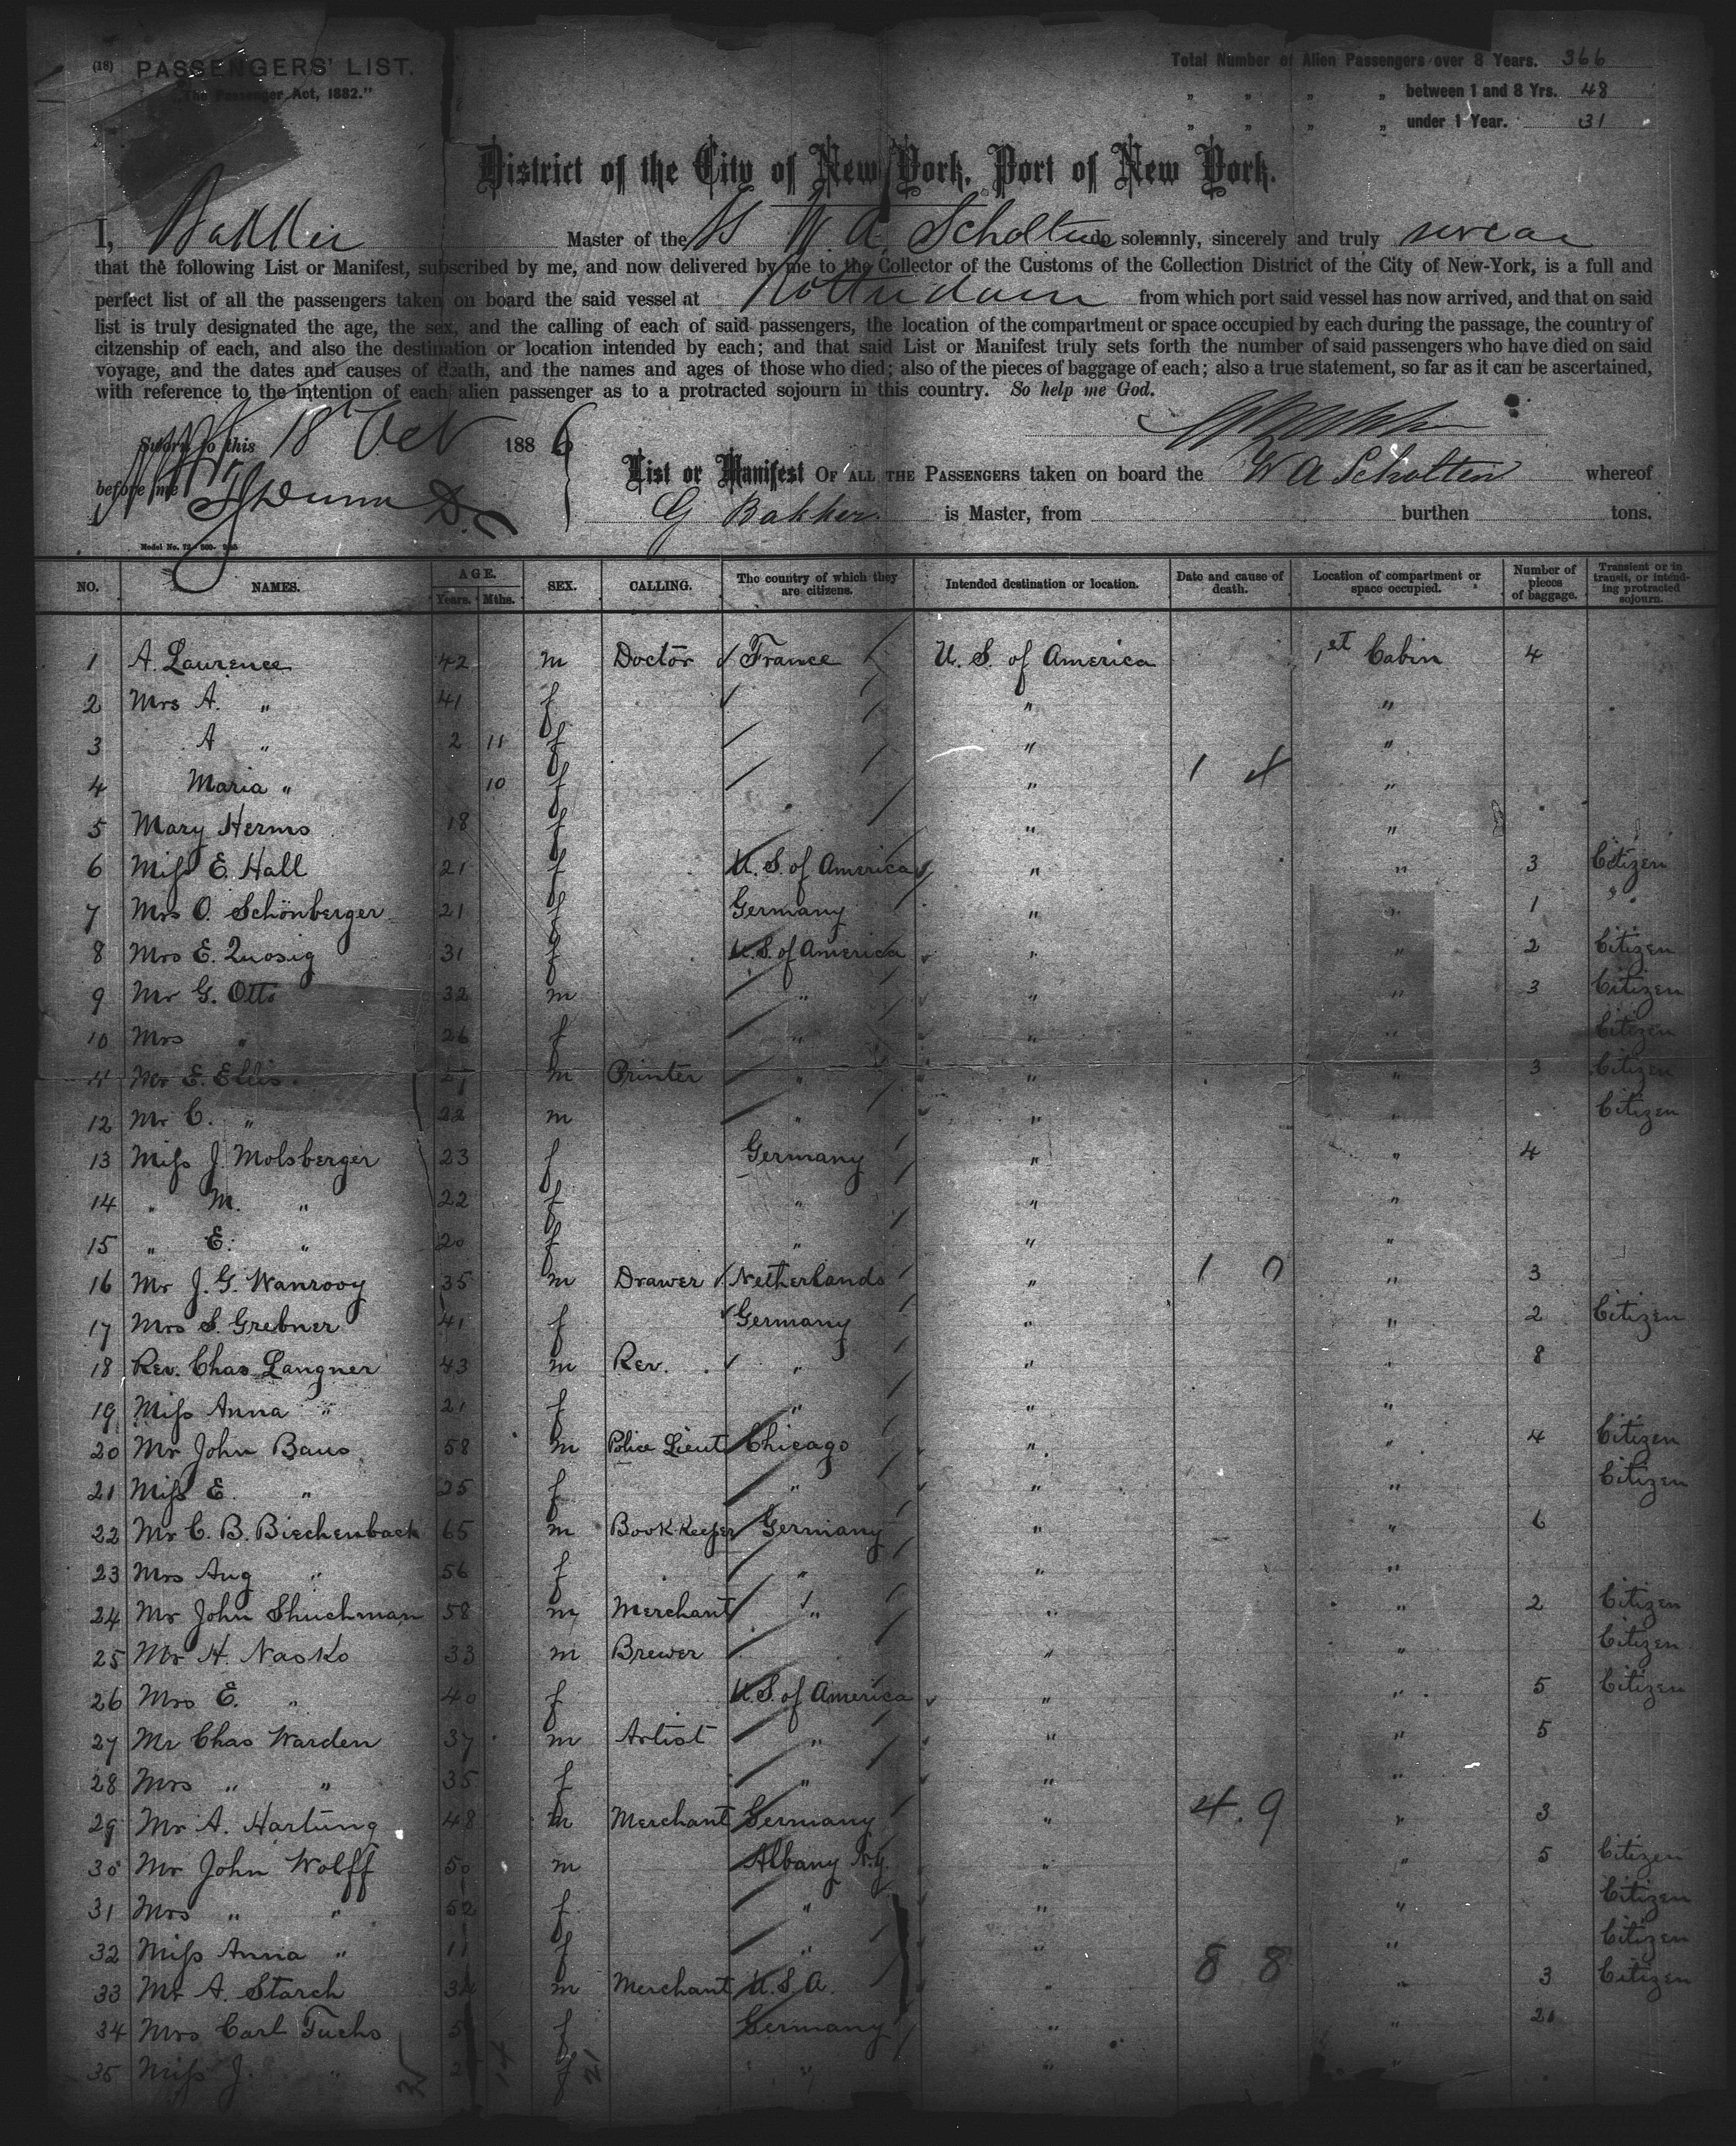 (18) PASSENGERS' LIST.
„The Passenger Act, 1882."
Total Number of Alien Passengers over 8 Years. 366
„ „ „ „ between 1 and 8 Yrs. 48
„ „ „ „ under 1 Year. 31
District of the City of New York, Port of New York.
I, Bakker Master of the SS W. A. Scholten do solemnly, sincerely and truly swear
that the following List or Manifest, subscribed by me, and now delivered by me to the Collector of the Customs of the Collection District of the City of New-York, is a full and
perfect list of all the passengers taken on board the said vessel at Rotterdam from which port said vessel has now arrived, and that on said
list is truly designated the age, the sex, and the calling of each of said passengers, the location of the compartment or space occupied by each during the passage, the country of
citzenship of each, and also the destination or location intended by each; and that said List or Manifest truly sets forth the number of said passengers who have died on said
voyage, and the dates and causes of death, and the names and ages of those who died; also of the pieces of baggage of each; also a true statement, so far as it can be ascertained,
with reference to the intention of each alien passenger as to a protracted sojourn in this country. So help me God.
Sworn to this 18th Oct 1886
before me
List or Manifest OF ALL THE PASSENGERS taken on board the W A Scholten whereof
G Bakker is Master, from burthen tons.
NO. NAMES. AGE. Years. Mths. SEX. CALLING. The country of which they are citizens. Intended destination or location. Date and cause of death. Location of compartment or space occupied. Number of pieces of baggage. Transient or in transit, or intending protracted sojourn.
1 A. Laurence 42 m Doctor France U. S. of America 1st Cabin 4
2 Mrs A. „ 41 f „ „
3 A „ 2 11 f „ „
4 Maria „ 10 f „ 1 4 „
5 Mary Herms 18 f „ „
6 Miss E. Hall 21 f U. S. of America „ „ 3 Citizen
7 Mrs O. Schönberger 21 f Germany „ „ 1 „
8 Mrs E. Quosig 31 f U. S. of America „ „ 2 Citizen
9 Mr G. Otto 32 m „ „ „ 3 Citizen
10 Mrs „ 26 f „ „ „ Citizen
11 Mr E. Ellis. m Printer „ „ „ 3 Citizen
12 Mr C. „ 22 m „ „ „ Citizen
13 Miss J. Molsberger 23 f Germany „ „ 4
14 „ M. „ 22 f „ „ „
15 „ E. „ 20 f „ „ „
16 Mr J. G. Wanrooy 35 m Drawer Netherlands „ 1 0 „ 3
17 Mrs S. Grebner 41 f Germany „ „ 2 Citizen
18 Rev. Chas Langner 43 m Rev. „ „ „ 8
19 Miss Anna „ 21 f „ „ „
20 Mr John Baus 58 m Police Lieut Chicago „ „ 4 Citizen
21 Miss E. „ 25 f „ „ „ Citizen
22 Mr C. B. Biechenback 65 m Book-Keeper Germany „ „ 6
23 Mrs Aug „ 56 f „ „ „
24 Mr John Shuchman 58 m Merchant „ „ „ 2 Citizen
25 Mr H. Nasko 33 m Brewer „ „ Citizen
26 Mrs E. „ 40 f U. S. of America „ „ 5 Citizen
27 Mr Chas Warden 37 m Artist „ „ „ 5
28 Mrs „ „ 35 f „ „ „
29 Mr A. Hartung 48 m Merchant Germany „ 4. 9 „ 3
30 Mr John Wolff 50 m Albany N.Y. „ „ 5 Citizen
31 Mrs „ „ 52 f „ „ „ Citizen
32 Miss Anna „ 11 f „ „ „ Citizen
33 Mr A. Starch 34 m Merchant U. S. A. „ 8 8 „ 3 Citizen
34 Mrs Carl Fuchs f Germany „ „
35 Miss J. „ f „ „ „